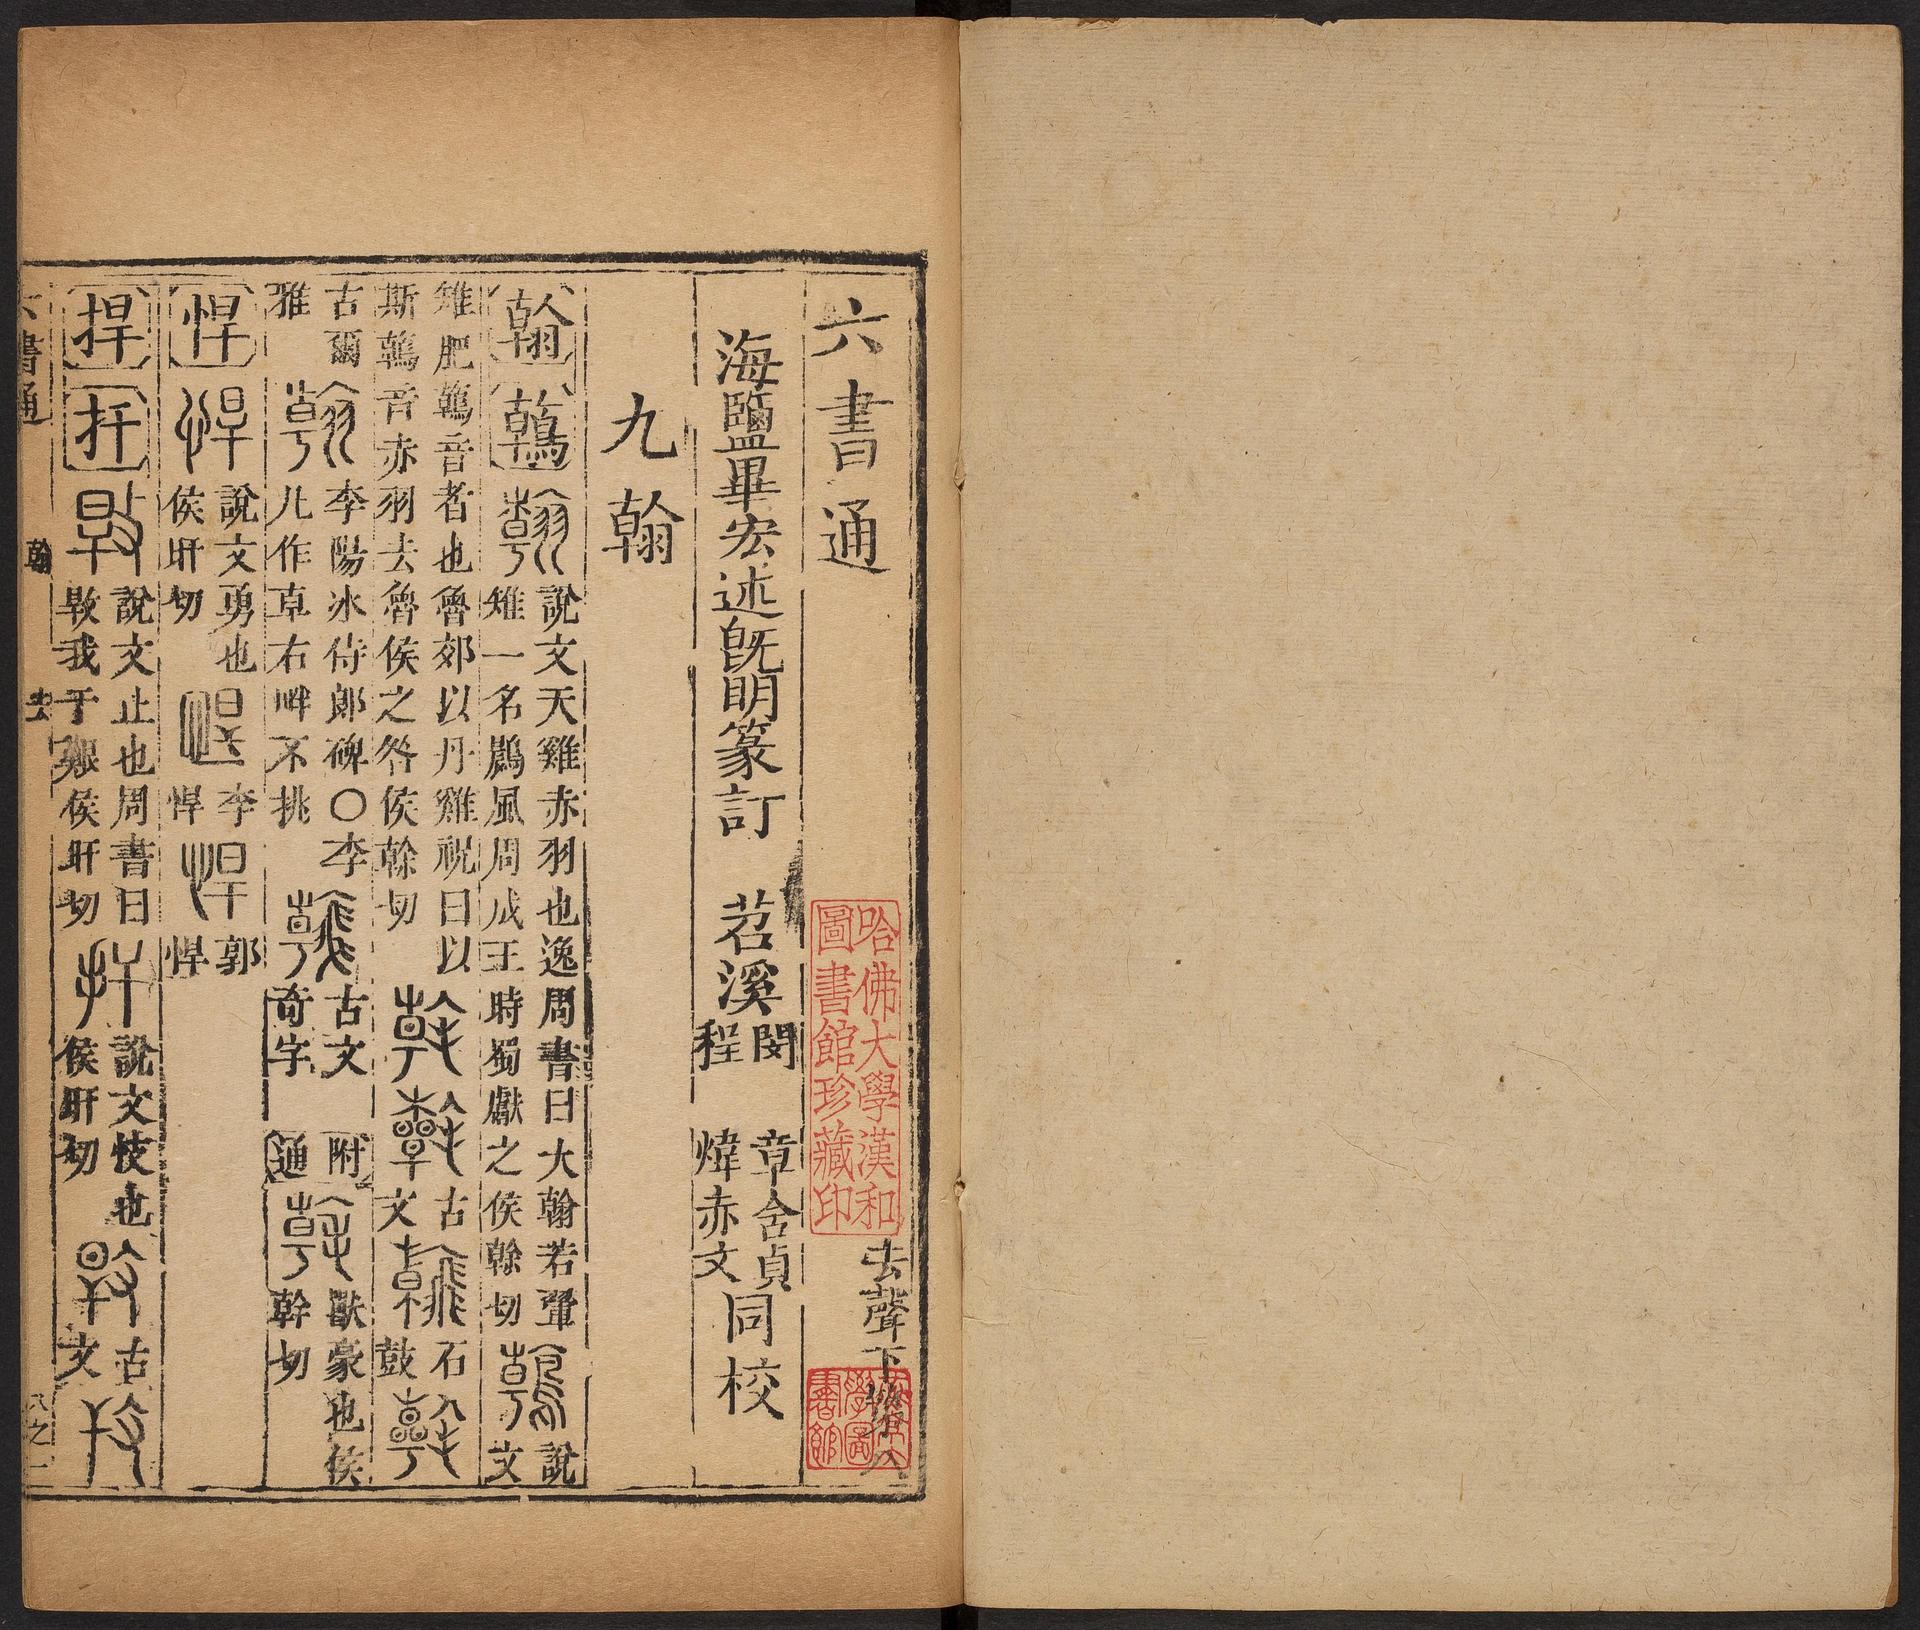 六書通
去聲下
哈佛大學漢和
圖書館珍藏印
海鹽畢宏述旣明篆訂 苕溪 閔章含貞 程煒赤文 同校
九翰
翰 鶾 說文天雞赤羽也逸周書曰大翰若翬
雉一名鷐風周成王時蜀獻之侯榦切 說
文
雉肥鶾音者也魯郊以丹雞祝曰以
斯鶾音赤羽去魯侯之咎侯榦切 古
文 石
鼓
古爾
雅 李陽冰侍郎碑○李
氿作草右畔不挑 古文
奇字 附
通 獸豪也侯
幹切
悍 說文勇也
侯旰切 李
悍 郭
悍
捍 扞 說文止也周書曰
敤我于艱侯旰切 說文忮也
侯旰切 古
文
六書通 翰 去 八之一